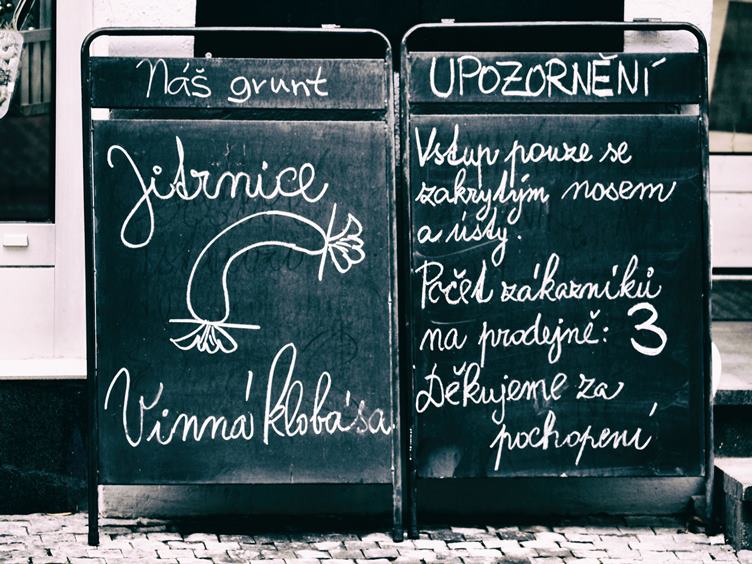 Náš grunt
Jitrnice
Vinná klobása
UPOZORNĚNÍ
Vstup pouze se
zakrytým nosem
a ústy.
Počet zákazníků
na prodejně: 3
Děkujeme za
pochopení